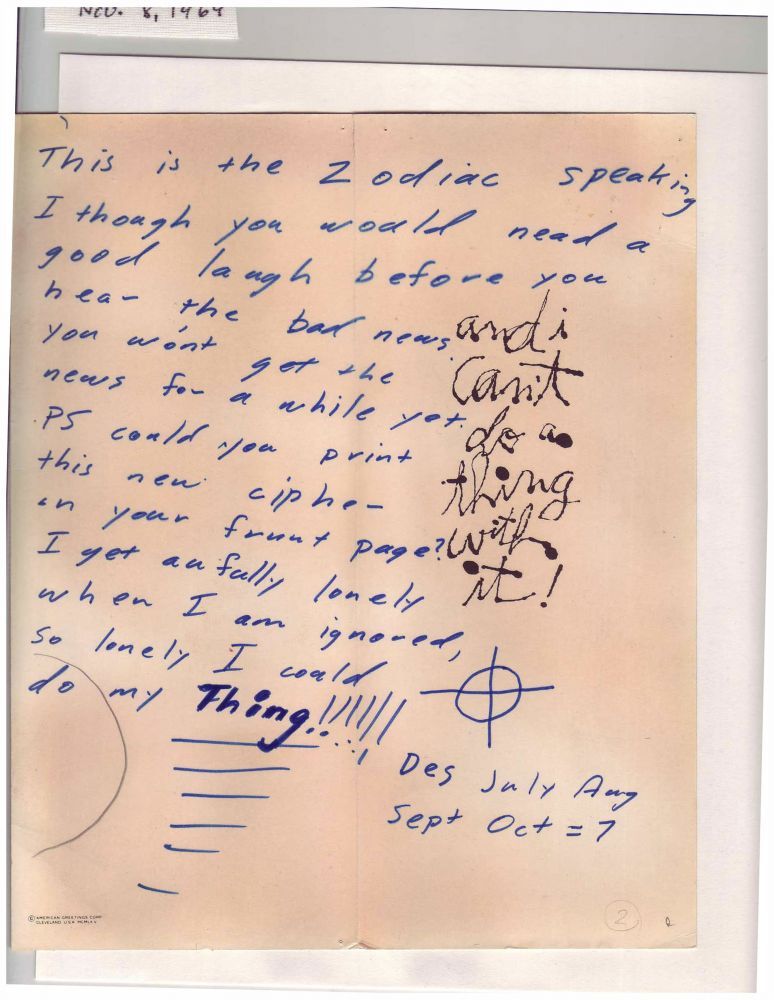 Nov. 8, 1969
This is the Zodiac speaking
I though you would nead a
good laugh before you
hear the bad news
you won't get the
news for a while yet.
PS could you print
this new cipher
on your frunt page?
I get aufully lonely
when I am ignored,
so lonely I could
do my Thing!!!!!!
and i
can't
do a
thing
with
it!
Des July Aug
Sept Oct = 7
© AMERICAN GREETINGS CORP.
CLEVELAND U.S.A. MCMLXV
2